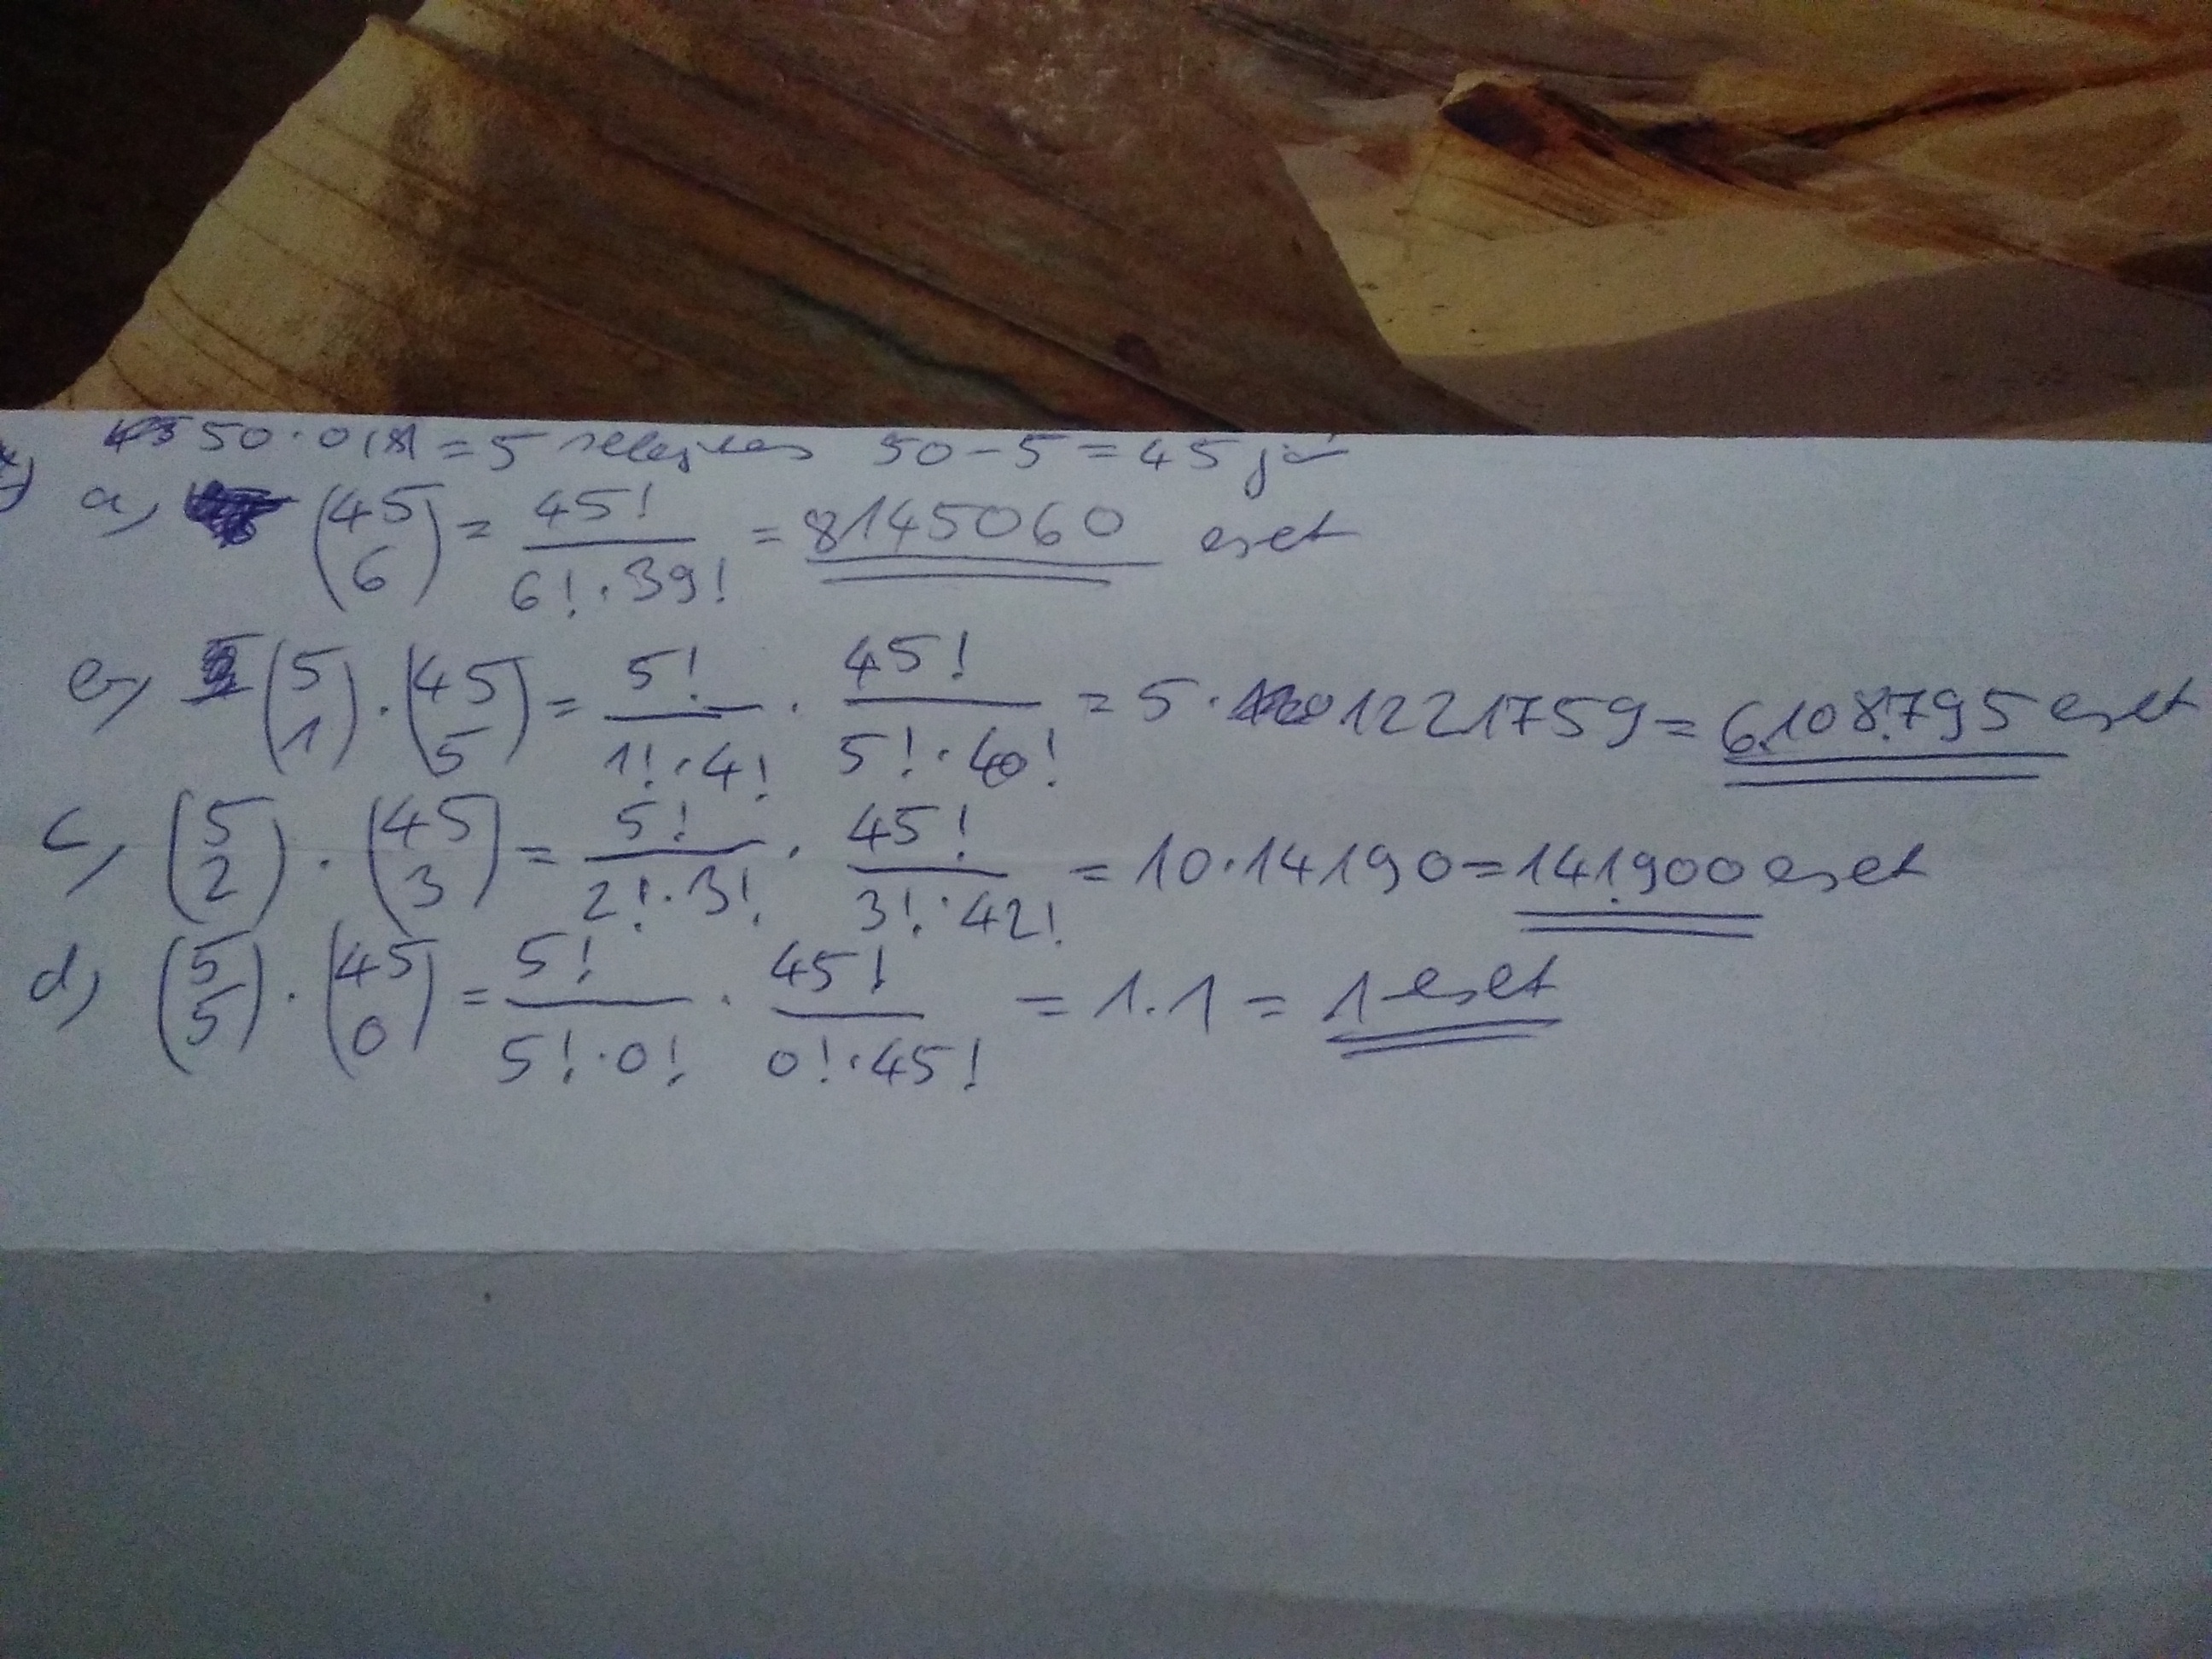 50·0,1=5 selejtes 50-5=45 jó
a, (45 6) = 45!/(6!·39!) = 8145060 eset
b, (5 1)·(45 5) = 5!/(1!·4!) · 45!/(5!·40!) = 5·1221759 = 6.108.795 eset
c, (5 2)·(45 3) = 5!/(2!·3!) · 45!/(3!·42!) = 10·14190 = 141.900 eset
d, (5 5)·(45 0) = 5!/(5!·0!) · 45!/(0!·45!) = 1·1 = 1 eset